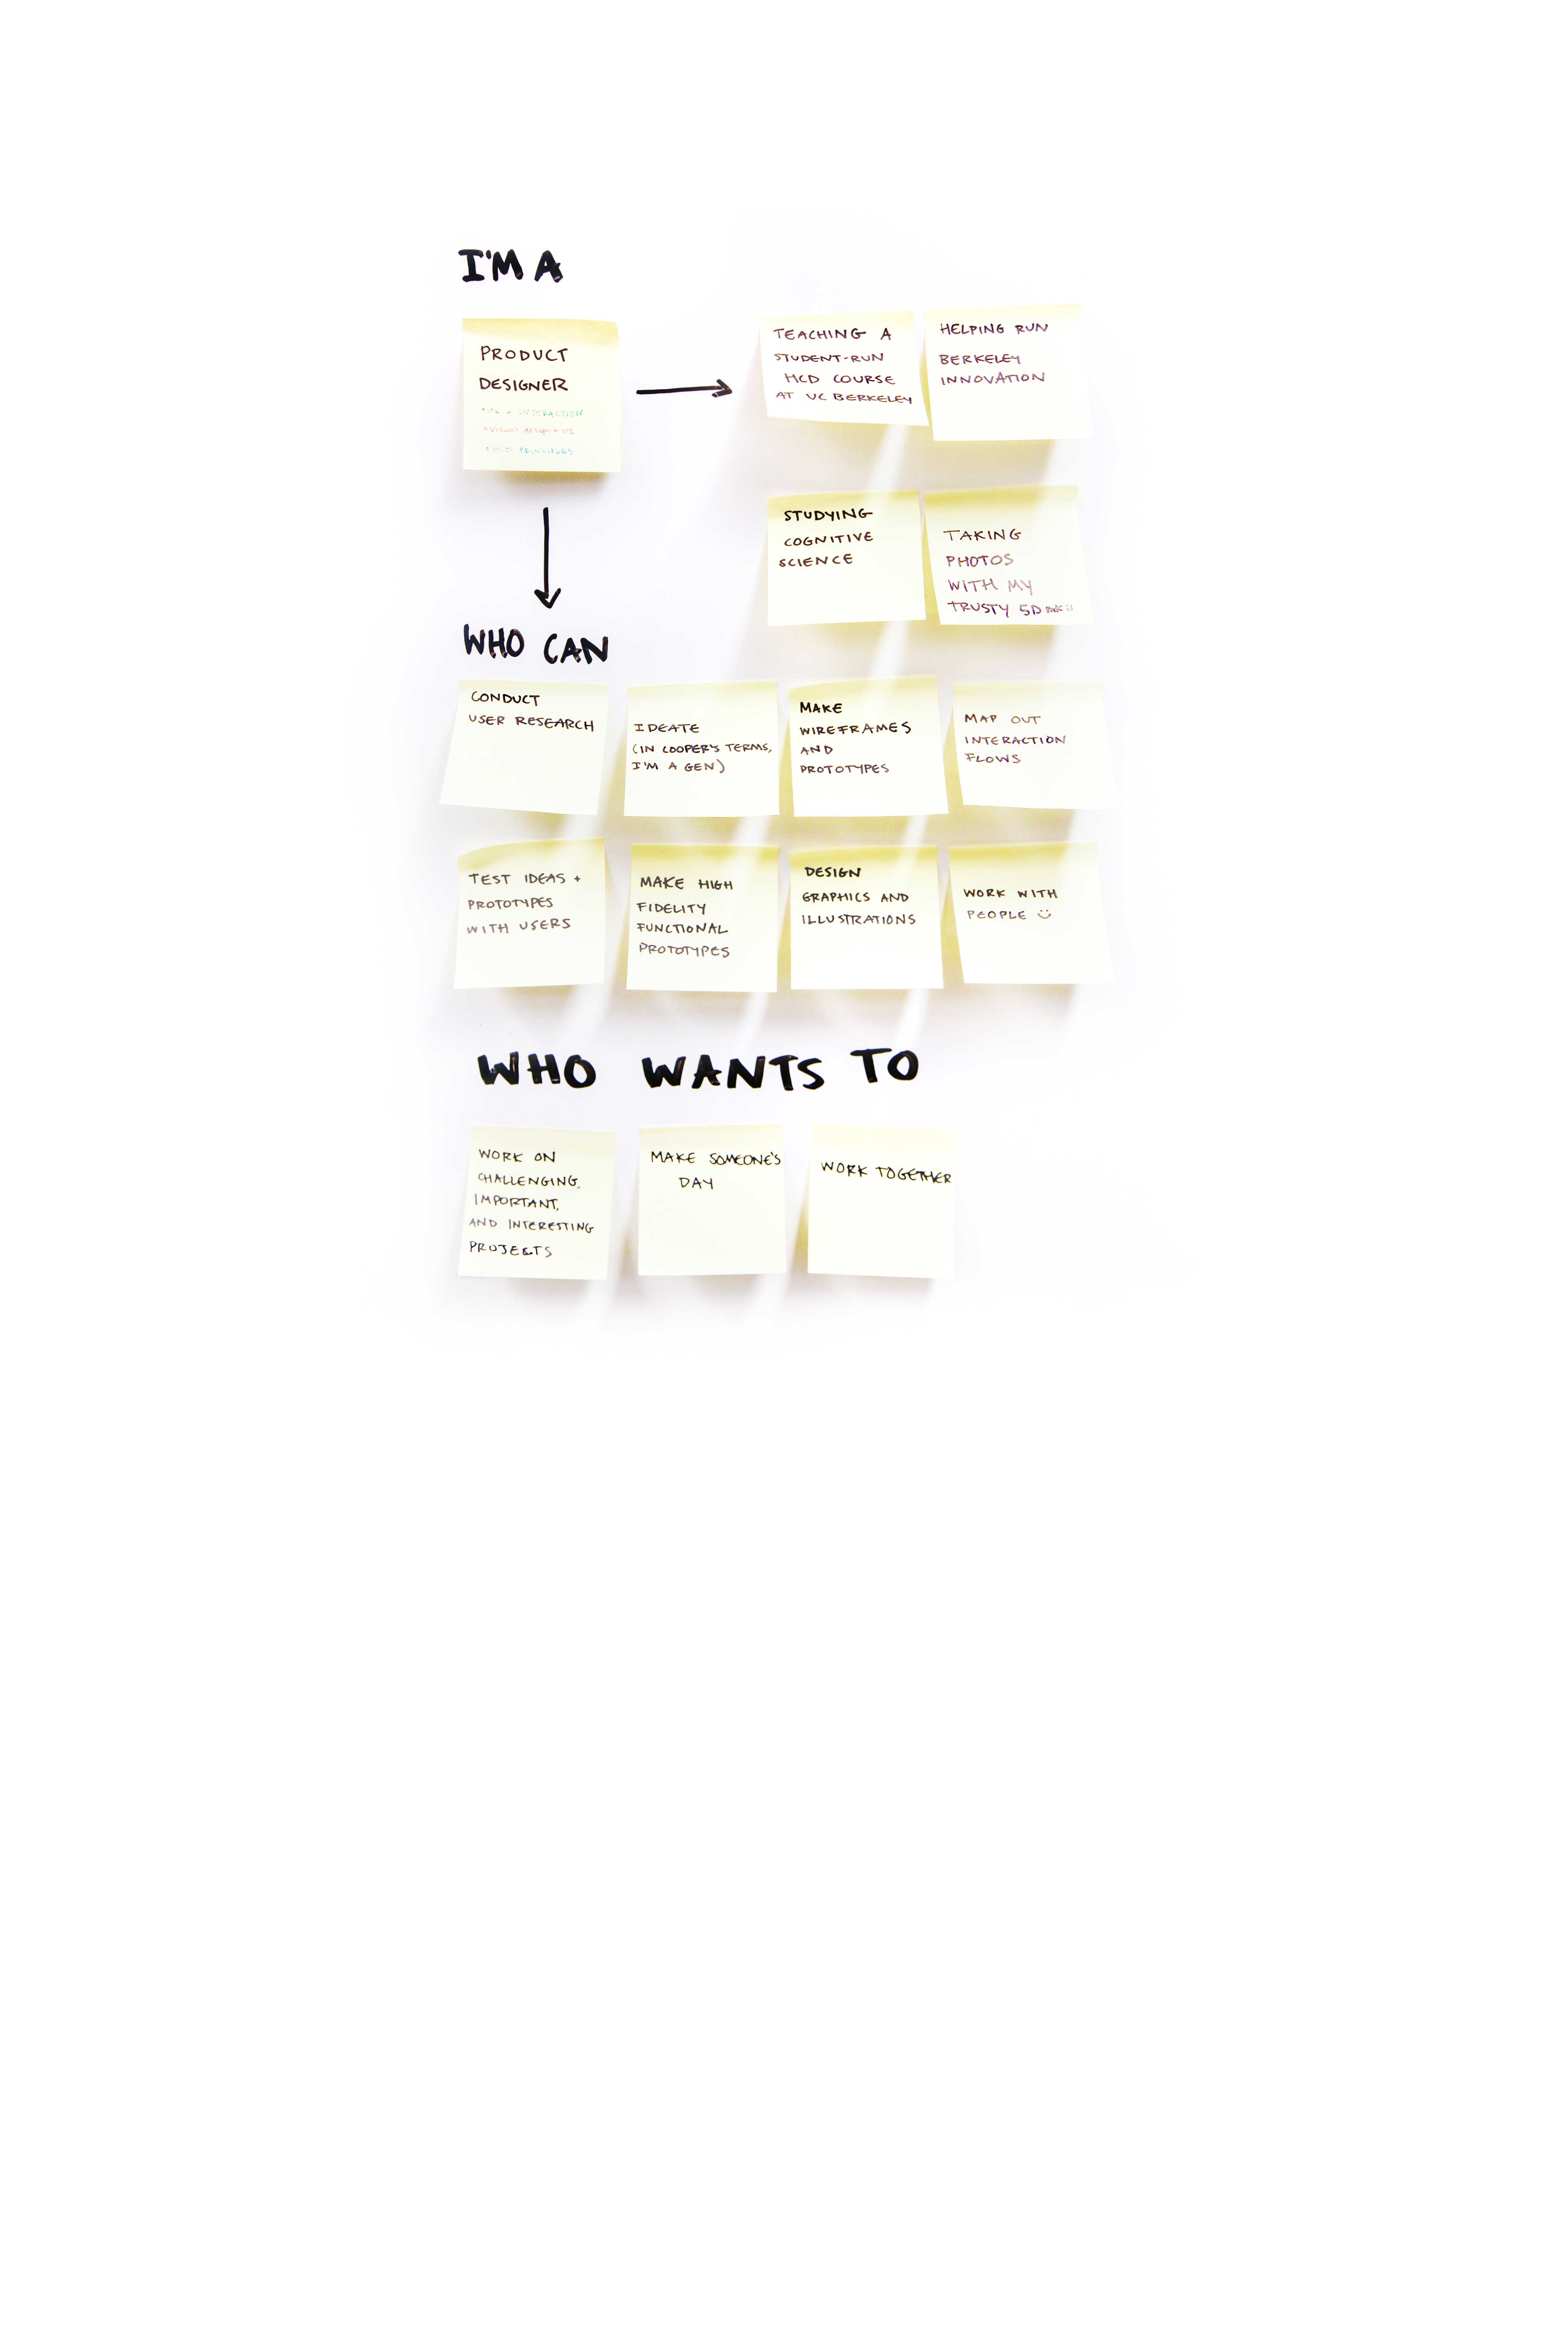 I'M A
PRODUCT
DESIGNER
INTERACTION
VISUAL DESIGN + UI
PRINCIPLES
TEACHING A
STUDENT-RUN
HCD COURSE
AT UC BERKELEY
HELPING RUN
BERKELEY
INNOVATION
STUDYING
COGNITIVE
SCIENCE
TAKING
PHOTOS
WITH MY
TRUSTY 5D
WHO CAN
CONDUCT
USER RESEARCH
IDEATE
(IN COOPER'S TERMS,
I'M A GEN)
MAKE
WIREFRAMES
AND
PROTOTYPES
MAP OUT
INTERACTION
FLOWS
TEST IDEAS +
PROTOTYPES
WITH USERS
MAKE HIGH
FIDELITY
FUNCTIONAL
PROTOTYPES
DESIGN
GRAPHICS AND
ILLUSTRATIONS
WORK WITH
PEOPLE
WHO WANTS TO
WORK ON
CHALLENGING,
IMPORTANT,
AND INTERESTING
PROJECTS
MAKE SOMEONE'S
DAY
WORK TOGETHER